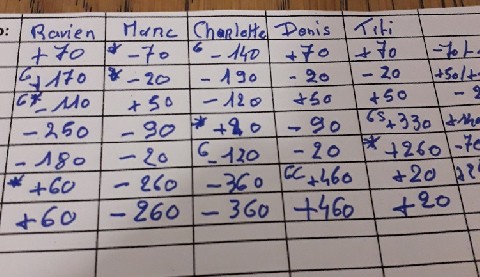 Ravien Marc Charlotte Denis Titi
+70 *-70 G-140 +70 +70 -70
G+170 *-20 -190 -20 -20 +50
G*-110 +50 -120 +50 +50
-250 -90 *+20 -90 GS+330
-180 -20 G-120 -20 *+260 -70
*+60 -260 -360 GC+460 +20
+60 -260 -360 +460 +20